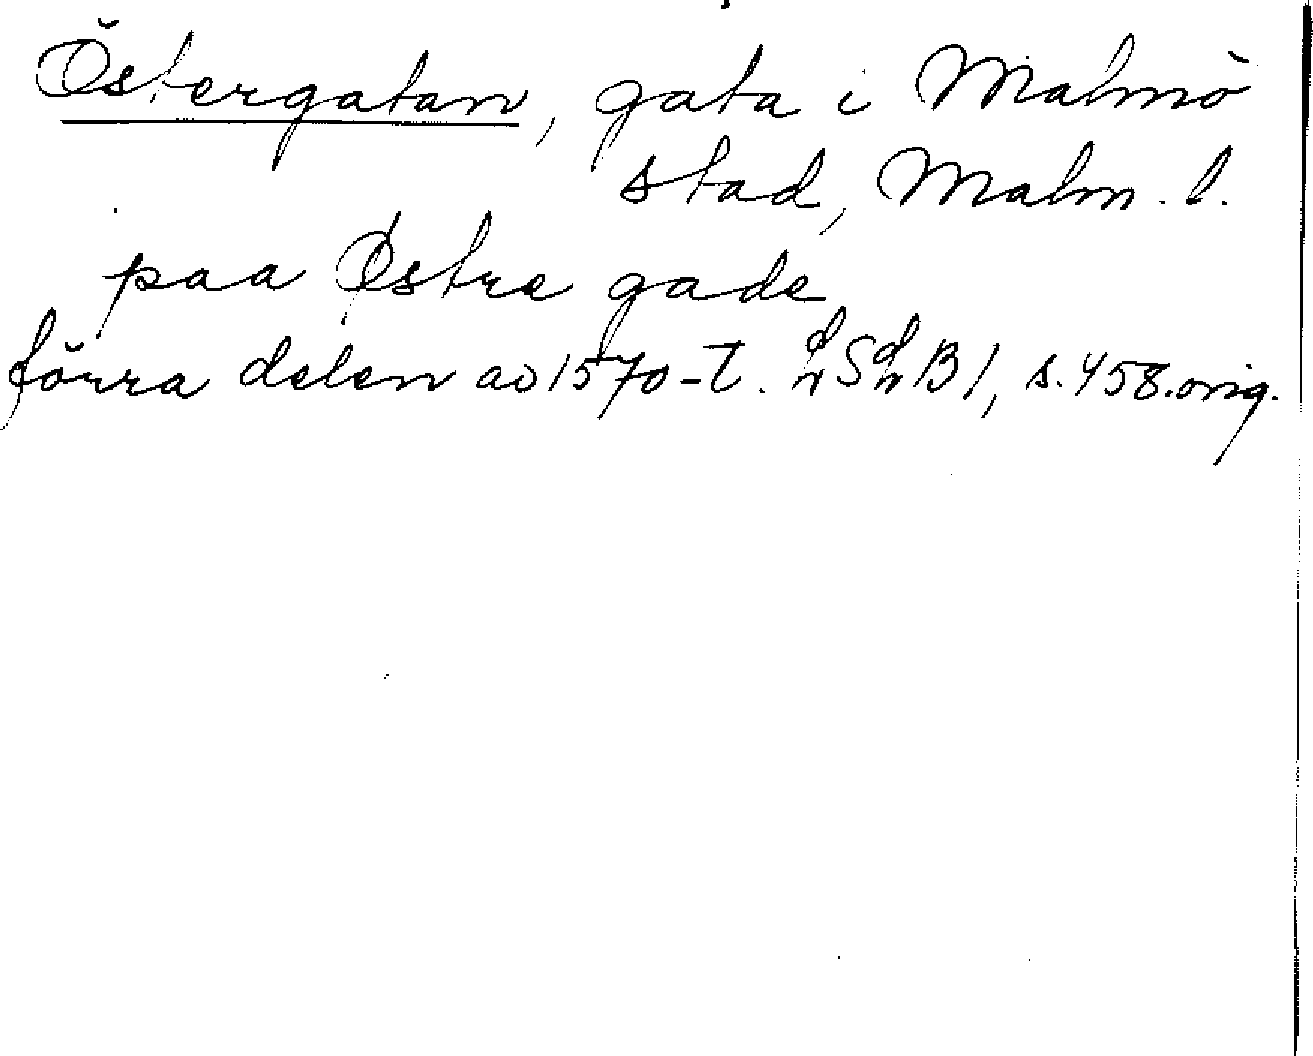 Östergatan, gata i Malmö
stad, Malm. l.
paa Østre gade
förra delen av 1570-t. B 1, s. 458. orig.